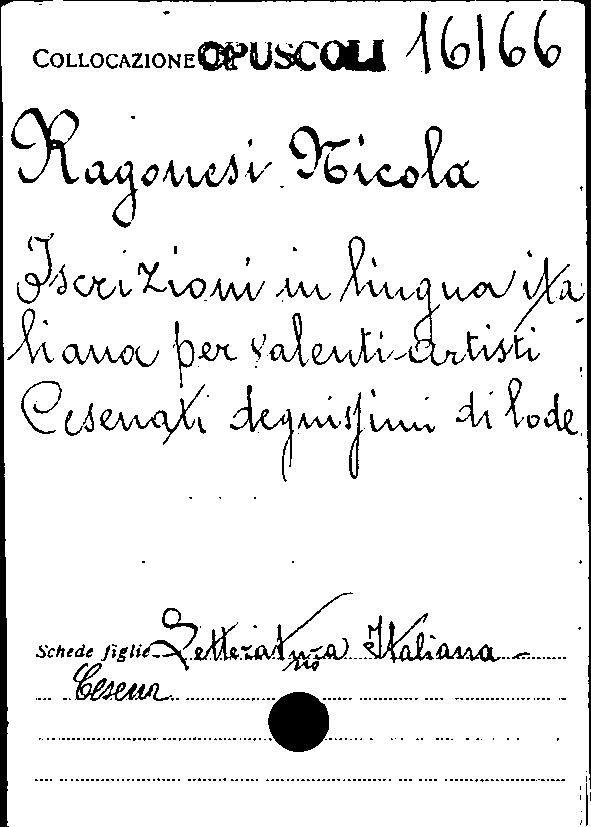 COLLOCAZIONE OPUSCOLI 16/66
Ragonesi Nicola
Iscrizioni in lingua ita
liana per valenti artisti
Cesenati degnissimi di lode
Schede figlie Letteratura Italiana -
Cesena